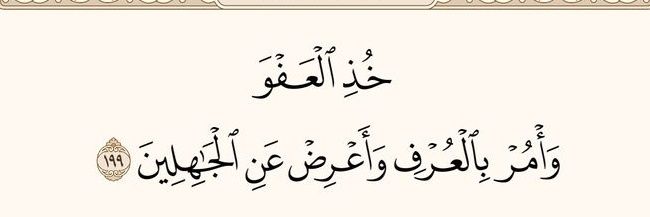 خُذِ ٱلْعَفْوَ
وَأْمُرْ بِٱلْعُرْفِ وَأَعْرِضْ عَنِ ٱلْجَٰهِلِينَ ١٩٩